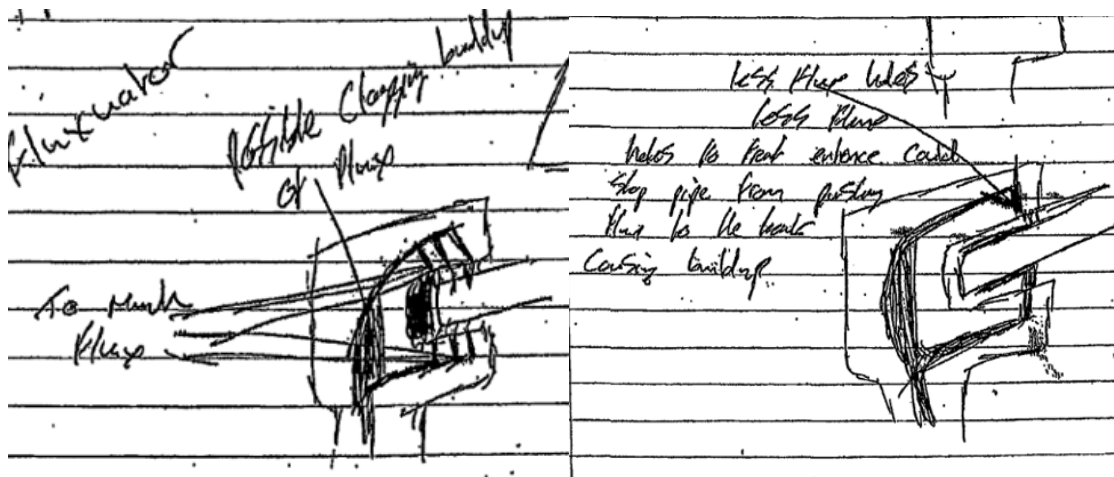 Possible Clogging buildup
of Flux
To Much
Flux
less Flux holes
less Flux
holes to front could
Stop pipe from pushing
Flux to the back
Causing buildup